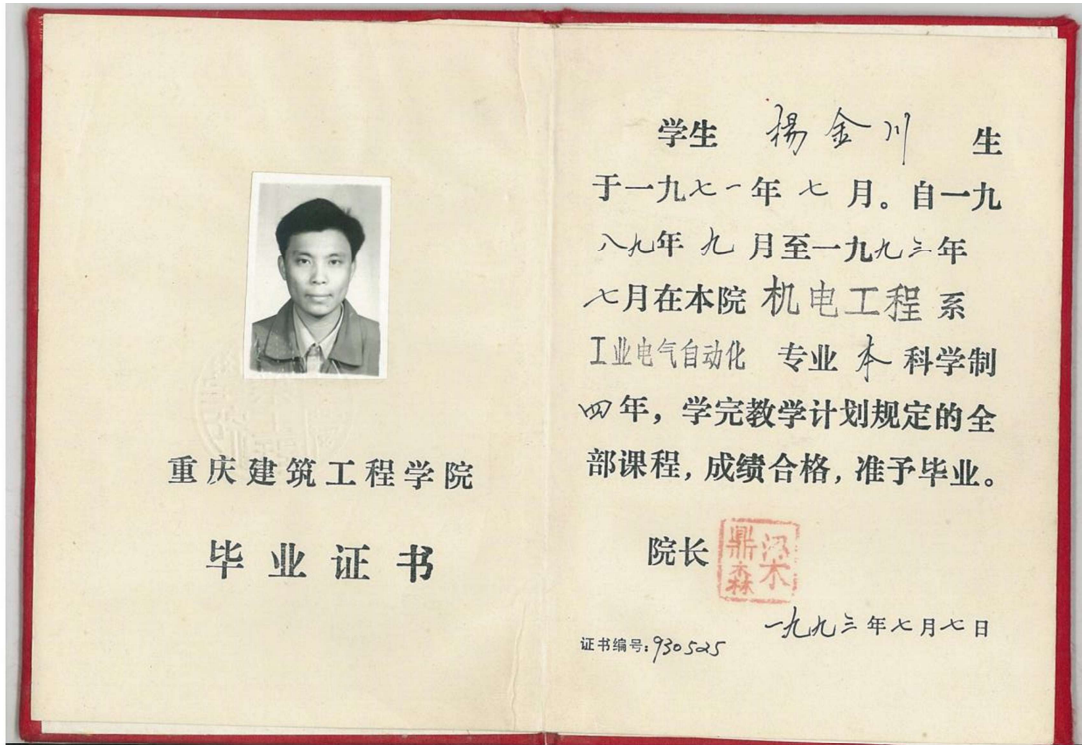 重庆建筑工程学院
毕业证书
学生 杨金川 生
于一九七一年七月。自一九
八九年九月至一九九三年
七月在本院机电工程系
工业电气自动化 专业本科学制
四年，学完教学计划规定的全
部课程，成绩合格，准予毕业。
院长 梁鼎森
一九九三年七月七日
证书编号：930525